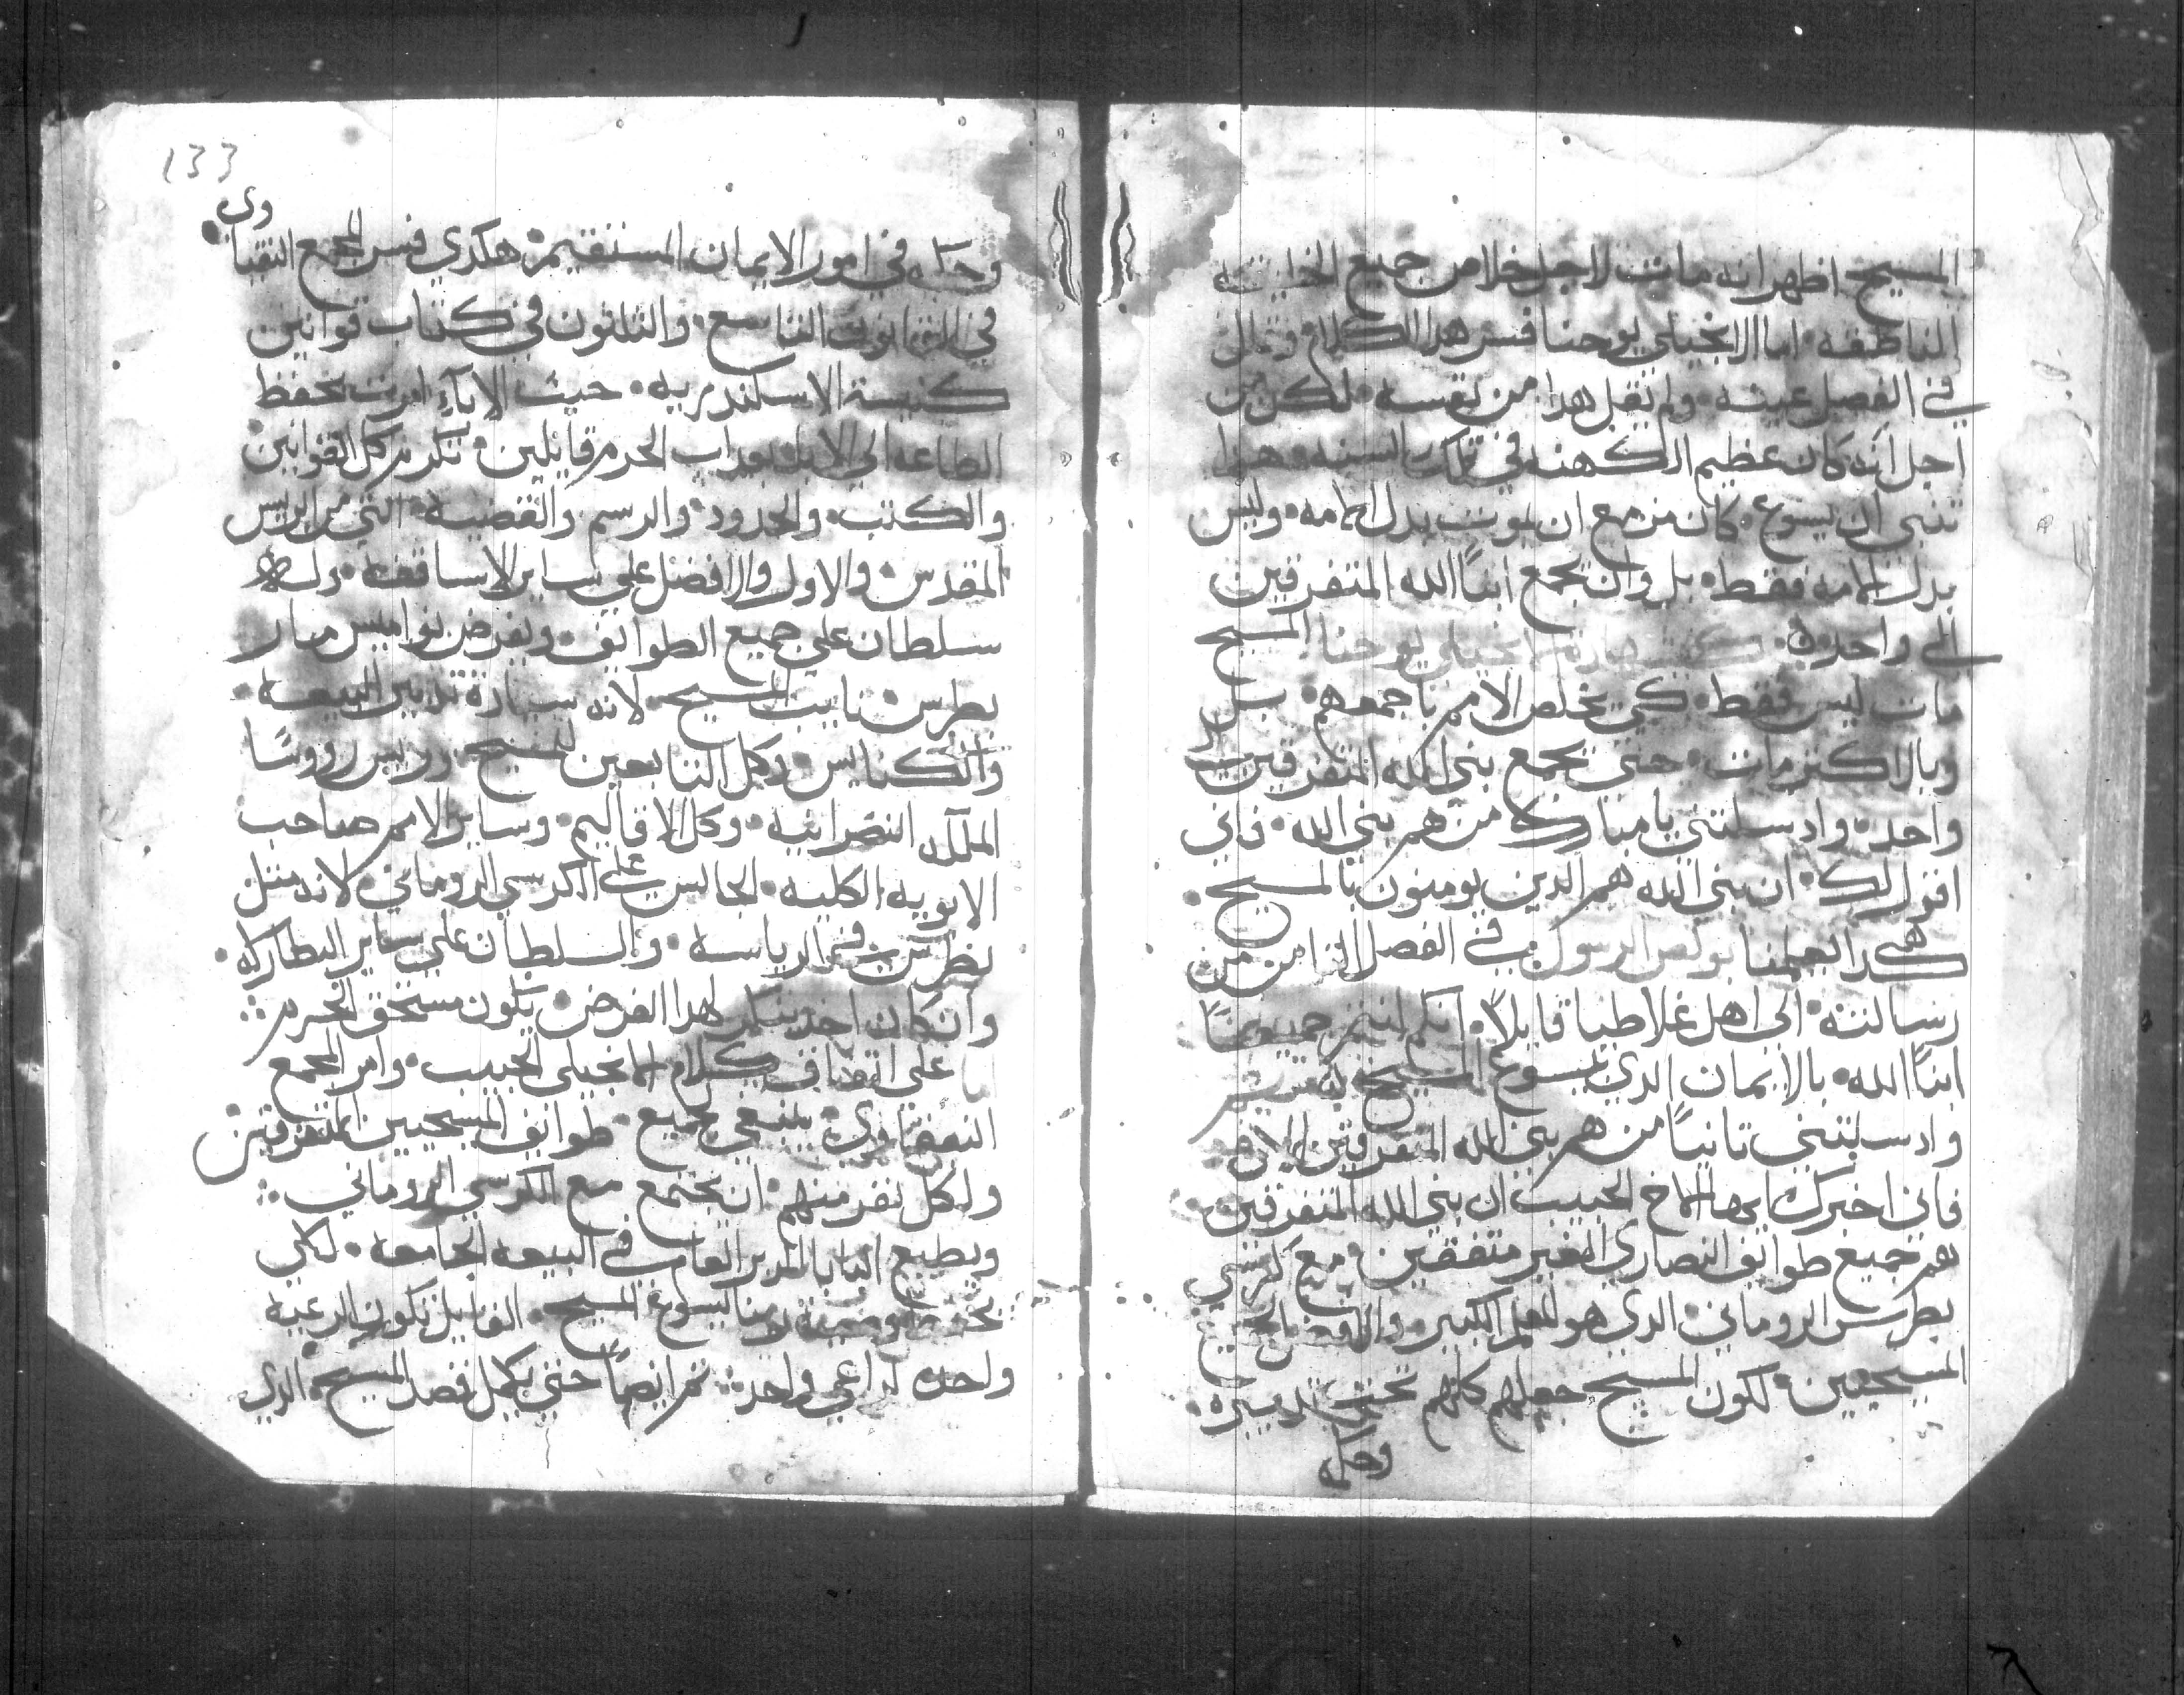 المسيح اظهر انه مات لاجل خلاص جميع الخليقه
الناطقه• اما الانجيلي يوحنا فسر هدا الكلام وقال
في الفصل عينه• ولم يقل هدا من نفسه• لكن من
اجل انه كان عظيم الكهنه في تلك السنه• هدا
تنبي ان يسوع• كان مزمع ان يموت بدل الامه• وليس
بدل الامه فقط• بل وان يجمع ابناً الله المتفرقين
الى واحد• الانجيلي يوحنا المسيح
مات ليس فقط• كي يخلص الامم باجمعهم• بل
وبالاكتر مات• حتي يجمع بني الله المتفرقين
واحد• واد سلتني يا مبارك من هم بني الله• فاني
اقول لك• ان بني الله هم الدين يومنون بالمسيح•
هكدا يعلمنا بولص الرسول في الفصل التامن من
رسالته• الى اهل غلاطيا قايلاً• انكم انتم جميعاً
ابناً الله• بالايمان الدي بيسوع المسيح
واد سلتني تانياً من هم بني الله المتفرقين
فاني اخبرك ايها الاخ الحبيب ان بني الله المتفرقين•
هم جميع طوايف النصاري الغير متفقين• مع كرسي
بطرس الروماني• الدي هو المعلم الكبير•
المسيحيين• لكون المسيح جعلهم كلهم تحت تدبيره•
وحكمه
133
وي
وحكمه في امور الايمان المستقيم• هكدي فسر المجمع النقيا
في القانون التاسع• والتلتون في كتاب قوانين
كنيسة الاسكندريه• حيث الاباء امرت بحفظ
الطاعه الي الابد بعداب الحرم قايلين• نكرم كل القوانين
والكتب• والحدود• والرسم والقضيه• التي من الريس
المقدس• والاول والافضل علي ساير الاساقفه•
سلطان علي جميع الطوايف• ويفرض نواميس مار
بطرس• نايب المسيح• لانه تدبير البيعه•
والكنايس• وكل التابعين المسيح• وريس رووسًا
الملل النصرانيه• وكل الاقاليم• وساير الامم صاحب
الابويه الكليه• الجالس علي الكرسي الروماني• لانه متل
بطرس في الرياسه• والسلطان علي ساير البطاركه•
وان كان احد ينكر لهدا الفرض• يكون مستحق الحرم
علي اتفاق كلام الانجيلي الحبيب• وامر المجمع
النيقاوي• ينبغي لجميع• طوايف المسيحيين المتفرقين•
ولكل نفر منهم• ان يجتمع مع الكرسي الروماني
ويطيع البابا المدبر العام في البيعه الجامعه• لكي
يحفظ وصية ربنا يسوع المسيح• القايل تكون الرعيه
واحده لراعي واحد• تم ايضاً حتي يكمل قصد المسيح• الدي